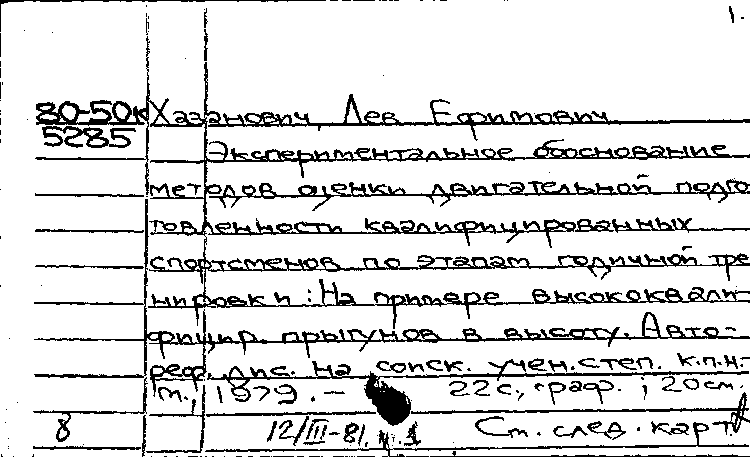 1.
80-50к Хазанович, Лев Ефимович
5285
Экспериментальное обоснование
методов оценки двигательной подго
товленности квалифицированных
спортсменов по этапам годичной тре
нировки : На примере высококвали-
фицир. прыгунов в высоту. Авто-
реф. дис. на соиск. учен. степ. к.п.н.
м., 1979. – 22с., граф. ; 20см.
8 12/III-81. Ст. след. карт